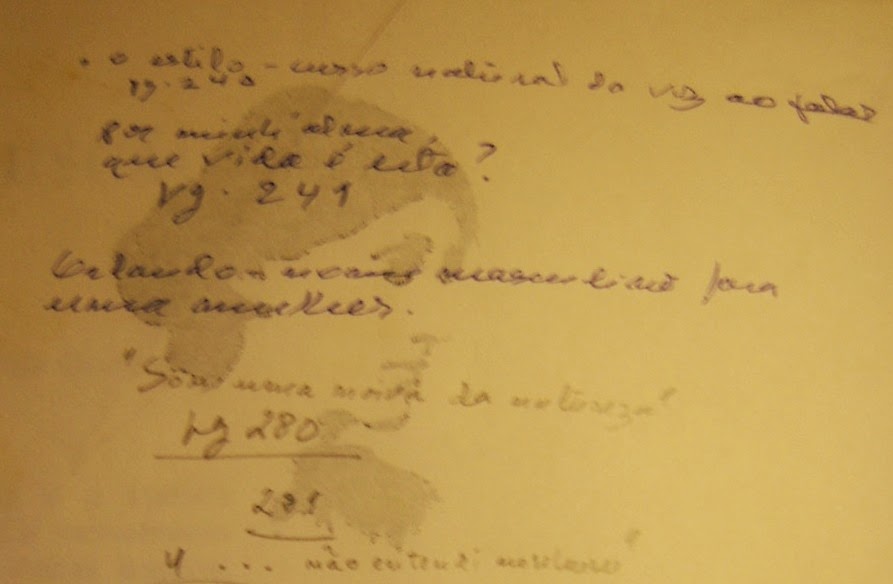 . o estilo - nosso natural da voz ao falar
pg. 240
por minh'alma,
que vida é esta?
pg. 241
Orlando - nome masculino para
uma mulher.
"Sou uma noiva da natureza"
pg 280
281
não entendi